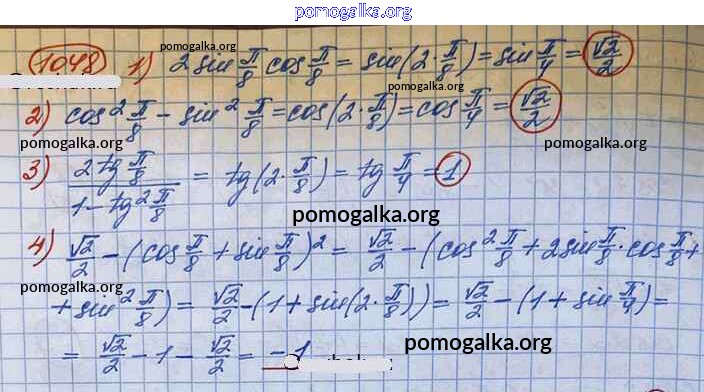 pomogalka.org
1048 1) 2 sin π/8 cos π/8 = sin(2·π/8) = sin π/4 = √2/2
pomogalka.org
2) cos² π/8 - sin² π/8 = cos(2·π/8) = cos π/4 = √2/2
pomogalka.org pomogalka.org
3) 2 tg π/8 / 1 - tg² π/8 = tg(2·π/8) = tg π/4 = 1
pomogalka.org
4) √2/2 - (cos π/8 + sin π/8)² = √2/2 - (cos² π/8 + 2 sin π/8 · cos π/8 +
pomogalka.org
+ sin² π/8) = √2/2 - (1 + sin(2·π/8)) = √2/2 - (1 + sin π/4) =
= √2/2 - 1 - √2/2 = -1
pomogalka.org